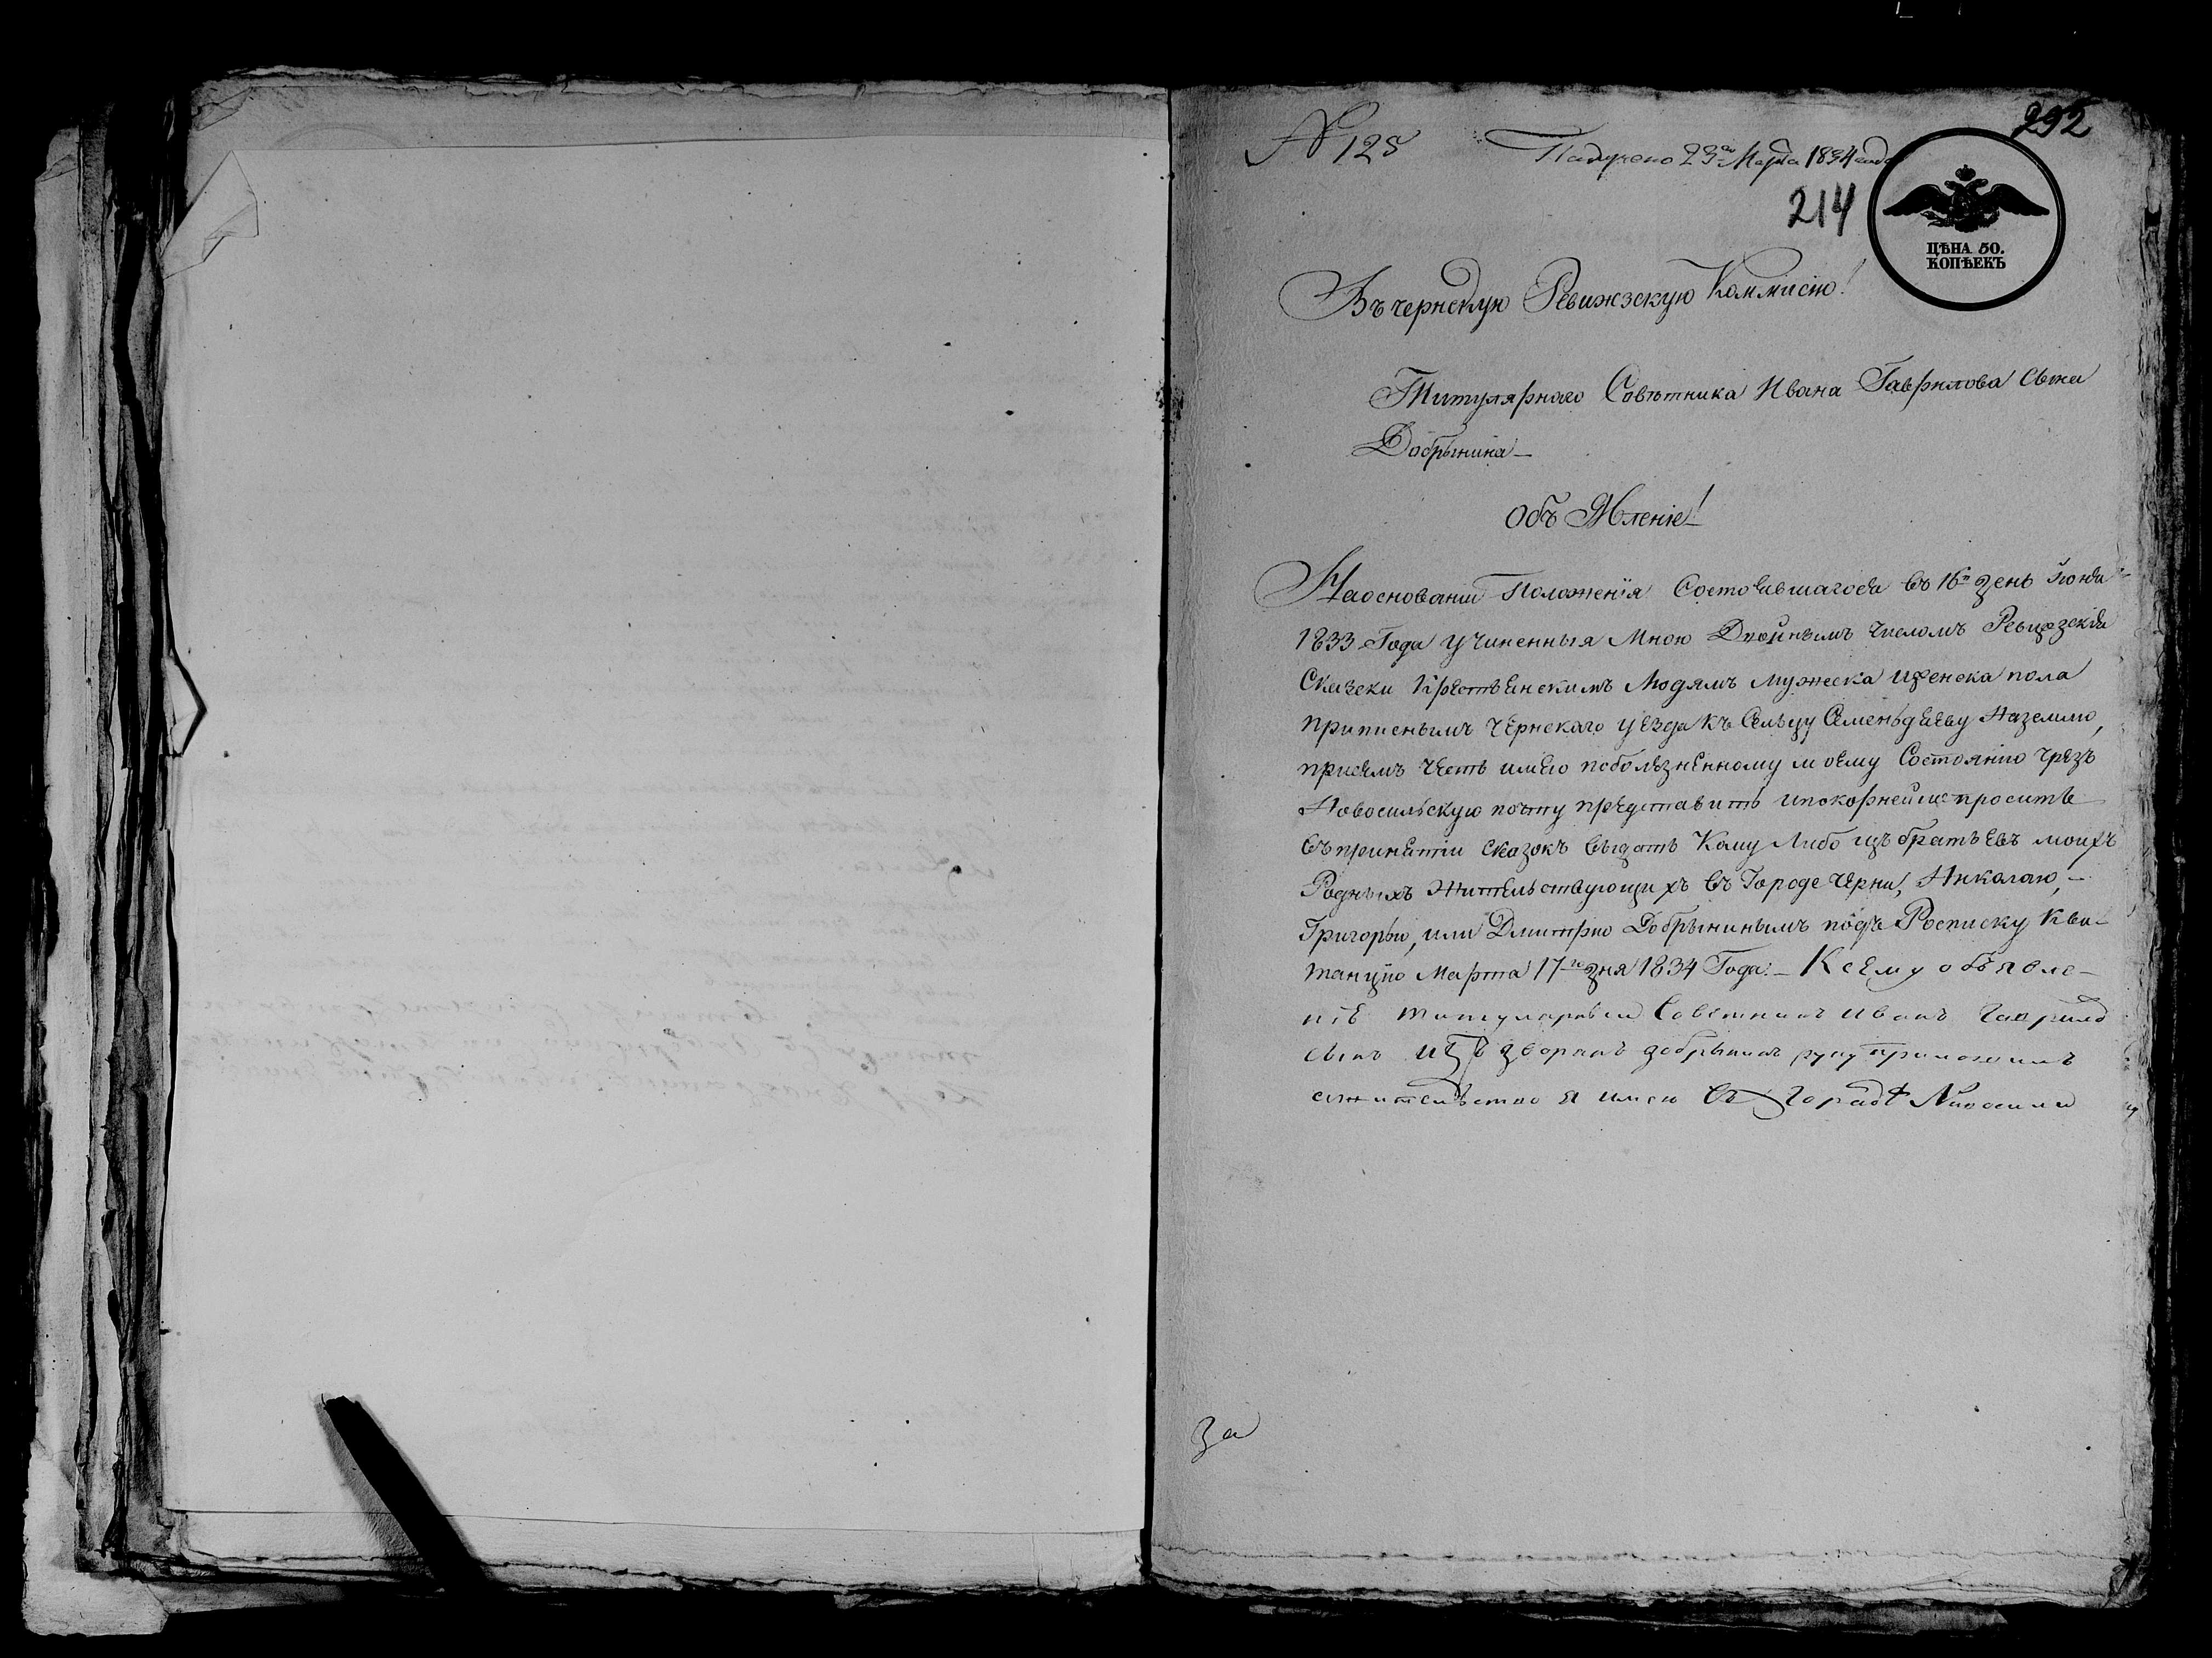 292
№ 125 Получено 23го Марта 1834 года
214
ЦѢНА 50.
КОПѢЕКЪ
Въ чернскую Ревижзскую Коммисію!
Титулярнаго Совѣтника Ивана Гаврилова Сына
Добрынина —
Объ Явленіе!
На основаніи Положенія Состоявшагося въ 16й день Іюня
1833 Года учиненныя Мною Двойнымъ числомъ Ревизския
Сказки Крестьянскимъ Людямъ мужеска и женска пола
приписнымъ Чернскаго уезда къ Сельцу
присемъ честь имею по болезненному моему Состоянію чрезъ
Новосильскую почту представить и покорнейше просить
въ принятіи сказокъ выдать Кому Либо изъ братьевъ моихъ
Родныхъ Жительствующихъ въ Городе Черни, Николаю, —
Григорью, или Дмитрию Добрынинымъ подъ Росписку Кви-
танцію Марта 17го дня 1834 Года. — К сему объявле-
ніе титулярный Советникъ Иванъ Гаврилов
сынъ изъ дворянъ добрынинъ руку приложилъ
жительство я имею въ городѣ
За